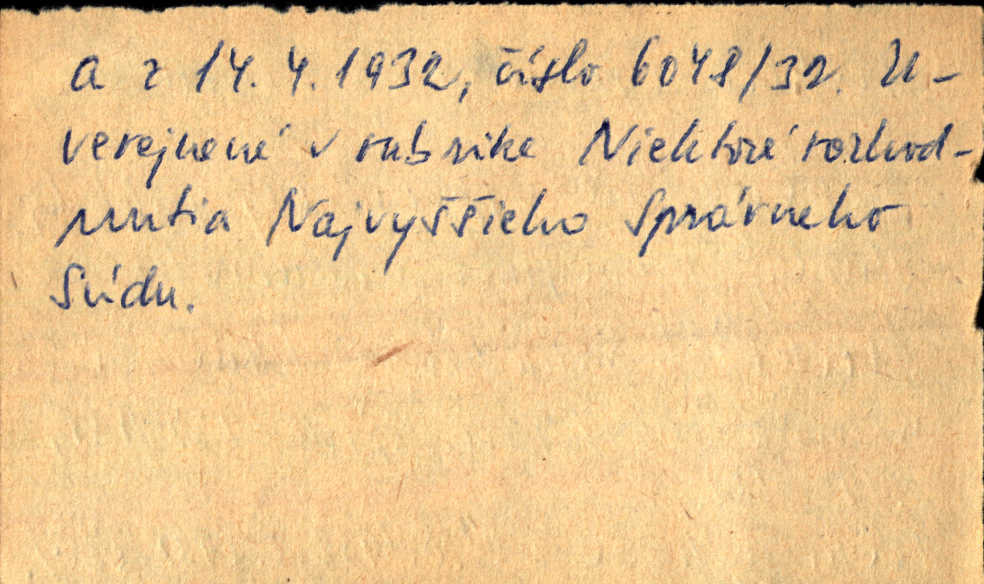 a z 14. 4. 1932, číslo 6048/32. U-
verejnené v rubrike Niektoré rozhod-
nutia Najvyššieho Správneho
Súdu.